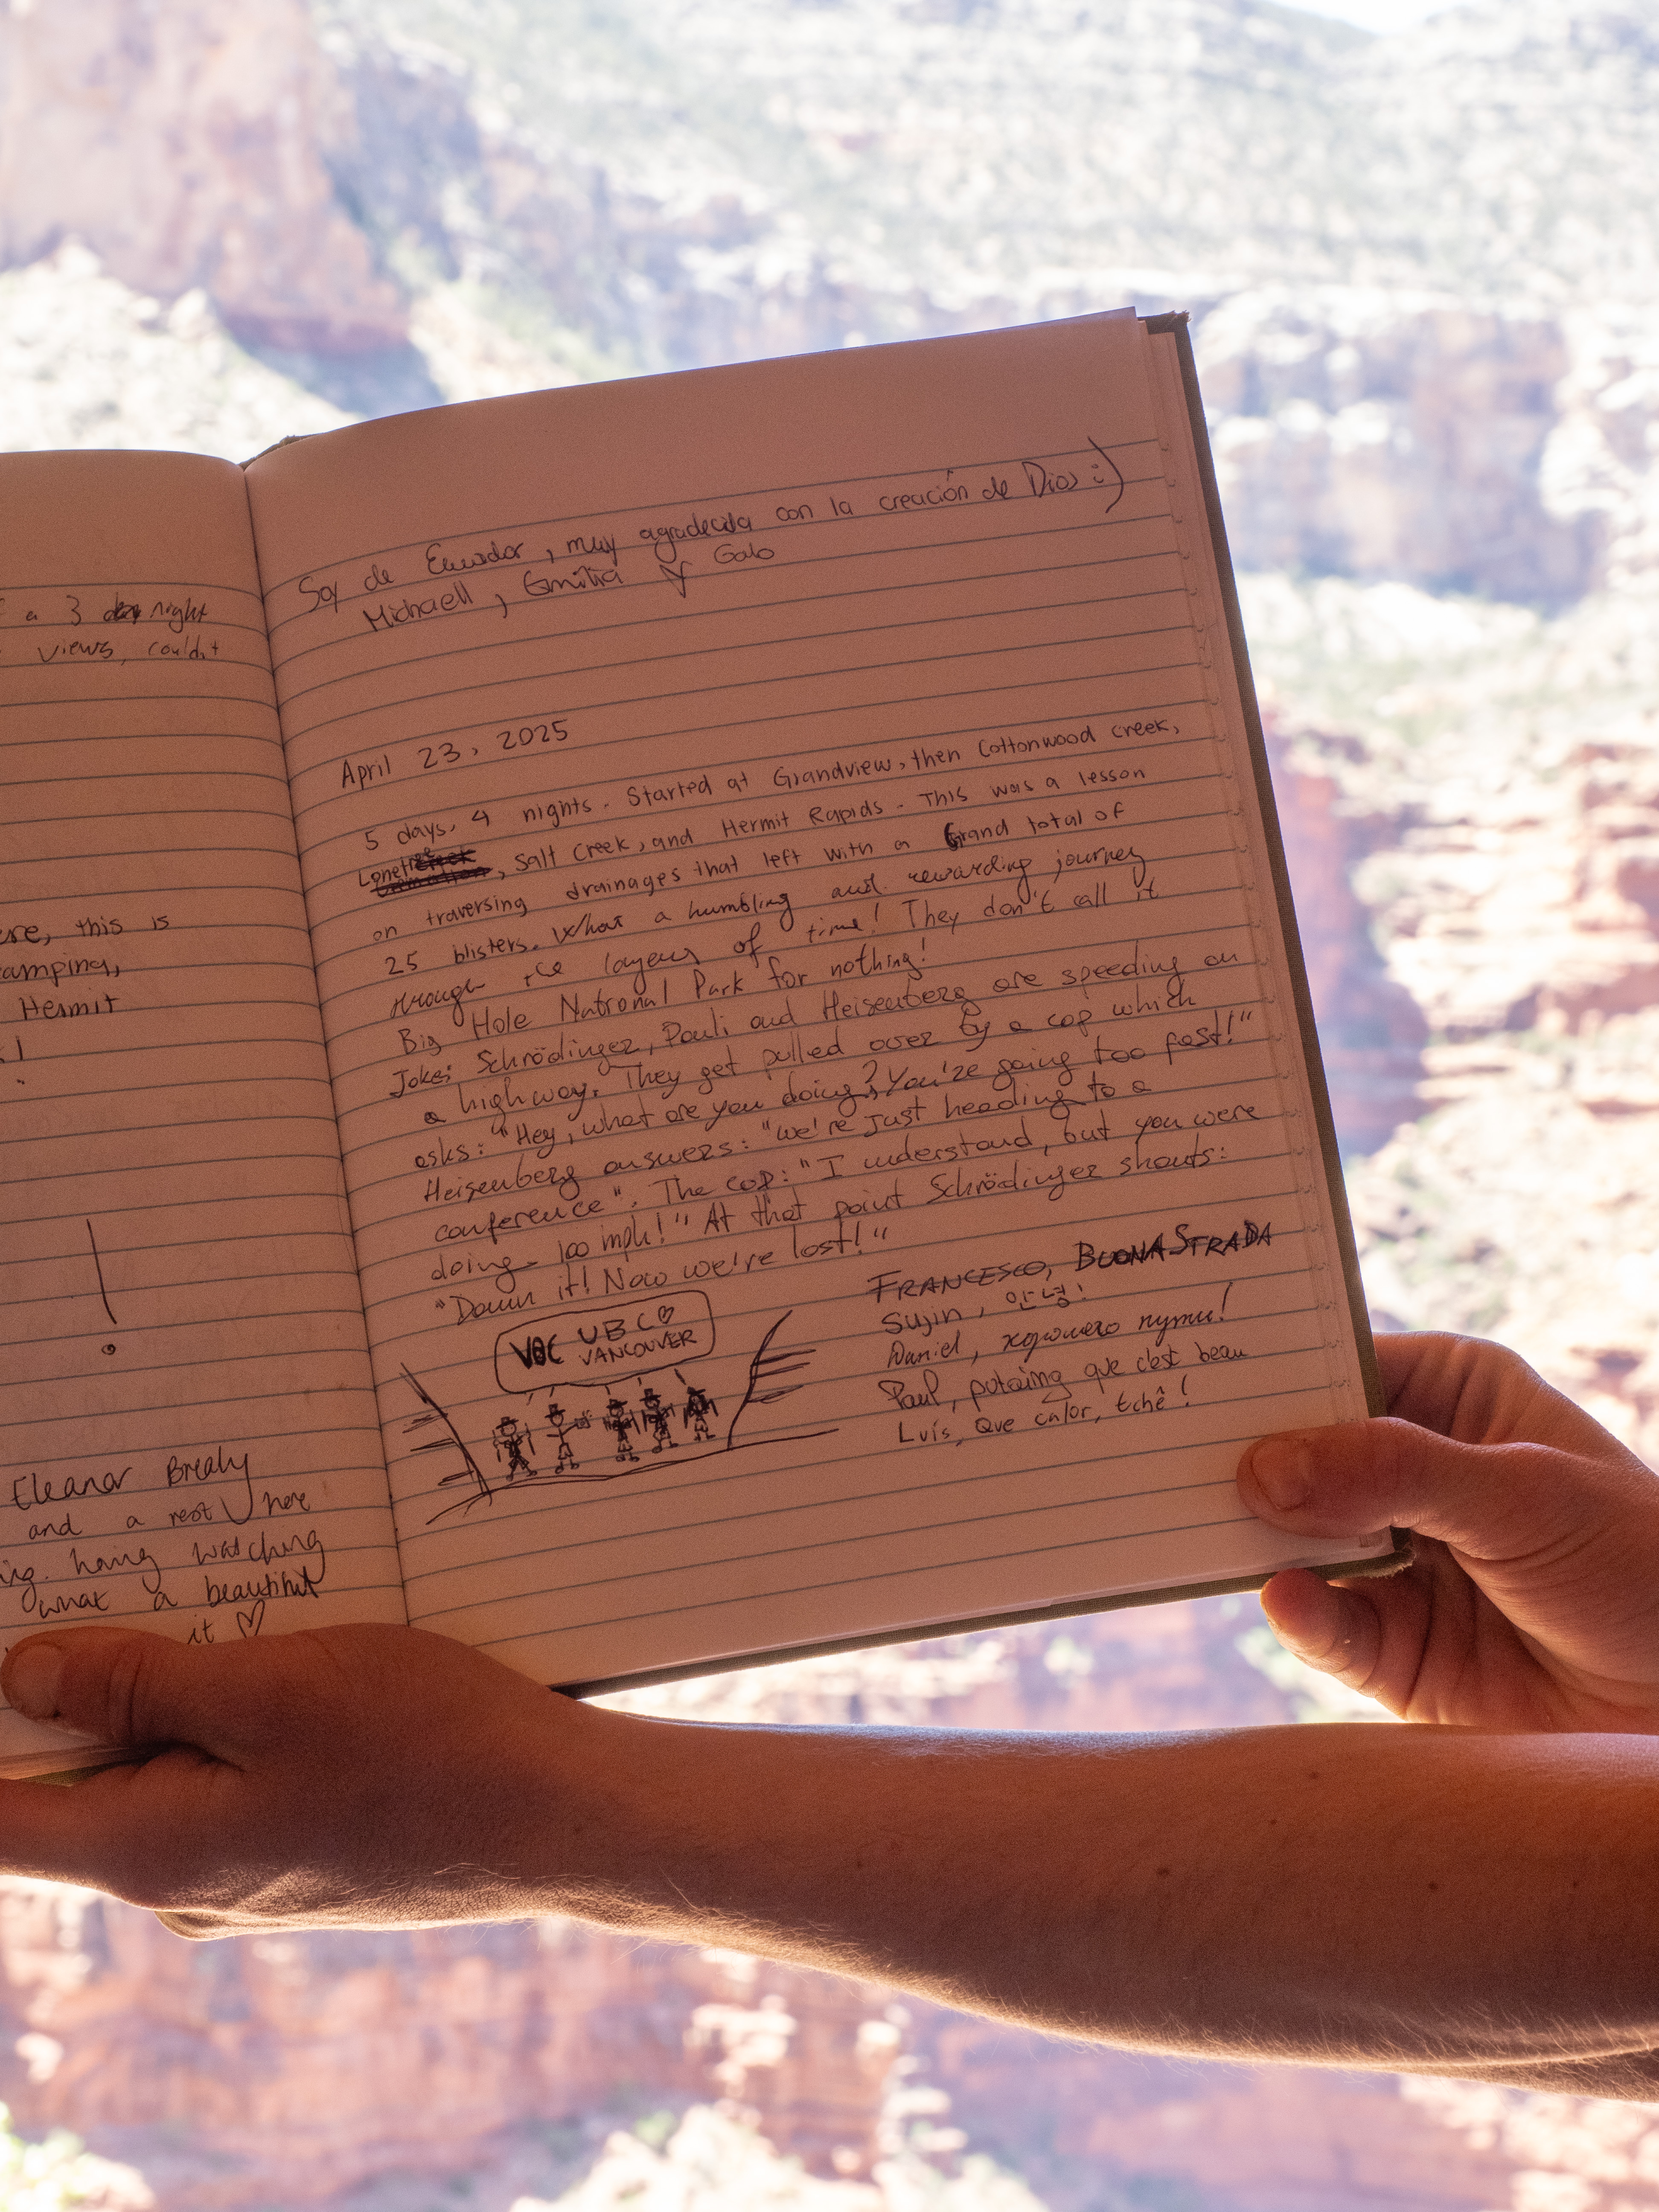 a 3 night
views, couldn't
this is
camping,
Hermit
!
Eleanor Brealy
and a rest here
having watching
what a beautiful
it ♡
Soy de Ecuador, muy agradecida con la creación de Dios :)
Michaell, Emilia y Galo
April 23, 2025
5 days, 4 nights. Started at Grandview, then Cottonwood Creek,
Lonetree, Salt Creek, and Hermit Rapids. This was a lesson
on traversing drainages that left with a Grand total of
25 blisters. What a humbling and rewarding journey
through the layers of time! They don't call it
Big Hole National Park for nothing!
Joke: Schrödinger, Pauli and Heisenberg are speeding on
a highway. They get pulled over by a cop which
asks: "Hey, what are you doing? You're going too fast!"
Heisenberg answers: "We're just heading to a
conference". The cop: "I understand, but you were
doing 100 mph!" At that point Schrödinger shouts:
"Damn it! Now we're lost!"
VOC UBC ♡
VANCOUVER
FRANCESCO, BUONA STRADA
Sujin, 안녕!
Daniel, хорошего пути!
Paul, putaing que c'est beau
Luís, Que calor, tchê!